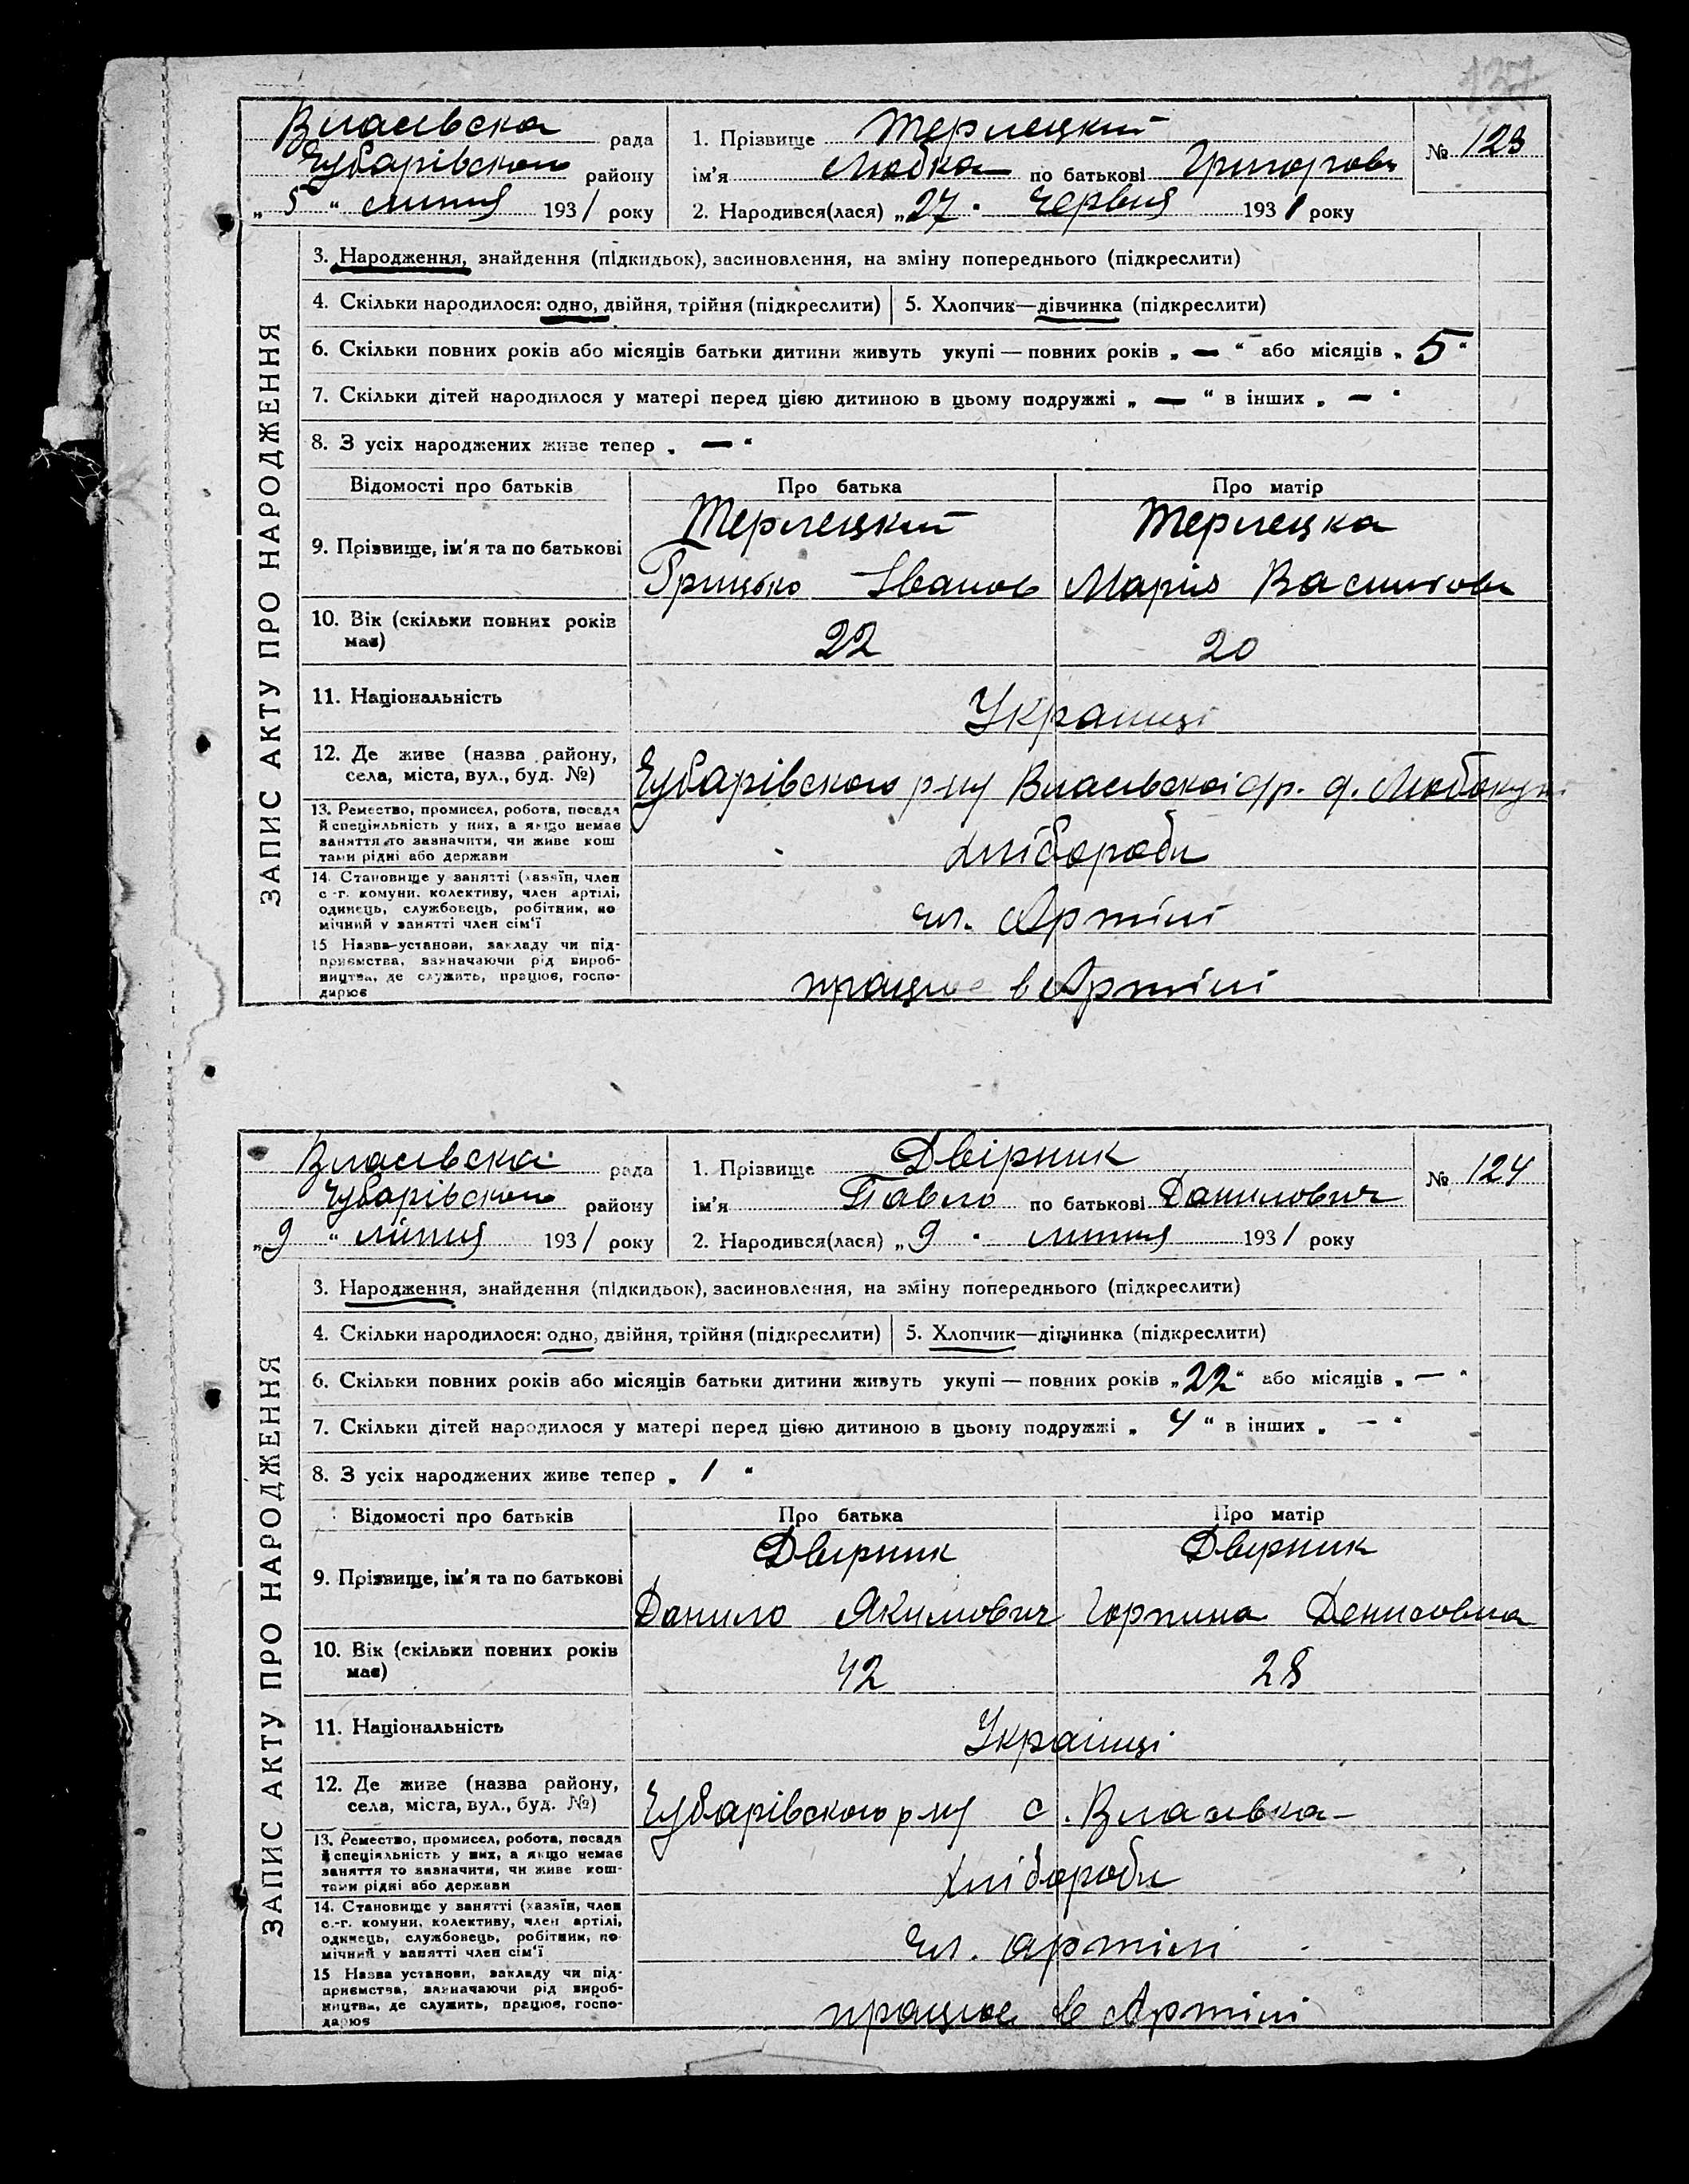 137
Власівска рада
Чубарівского району
„5“ липня 1931 року
1. Прізвище Терлецкий
ім'я Любка по батькові Григоровн
2. Народився(лася) „27“ Червня 1931 року
№ 123
ЗАПИС АКТУ ПРО НАРОДЖЕННЯ
3. Народження, знайдення (підкидьок), засиновлення, на зміну попереднього (підкреслити)
4. Скільки народилося: одно, двійня, трійня (підкреслити) 5. Хлопчик—дівчинка (підкреслити)
6. Скільки повних років або місяців батьки дитини живуть укупі — повних років „—“ або місяців „5“
7. Скільки дітей народилося у матері перед цією дитиною в цьому подружжі „—“ в інших „—“
8. З усіх народжених живе тепер „—“
Відомості про батьків Про батька Про матір
9. Прізвище, ім'я та по батькові
Терлецкий Терлецка
Грицько Іванов Марія Васильовн
10. Вік (скільки повних років має) 22 20
11. Національність Українці
12. Де живе (назва району, села, міста, вул., буд. №)
Чубарівского р-ну Власівскої с/р.
13. Ремество, промисел, робота, посада й спеціяльність у них, а якщо немає заняття то зазначити, чи живе кош тами рідні або держави
хлібороби
14. Становище у занятті (хазяїн, член с.-г. комуни, колективу, член артілі, одинець, службовець, робітник, помічний у занятті член сім'ї
чл. Артілі
15 Назва установи, закладу чи підприємства, зазначаючи рід виробництва, де служить, працює, господарює
працює в Артілі
Власівска рада
Чубарівского району
„9“ липня 1931 року
1. Прізвище Двірник
ім'я Павло по батькові Данилович
2. Народився(лася) „9“ липня 1931 року
№ 124
ЗАПИС АКТУ ПРО НАРОДЖЕННЯ
3. Народження, знайдення (підкидьок), засиновлення, на зміну попереднього (підкреслити)
4. Скільки народилося: одно, двійня, трійня (підкреслити) 5. Хлопчик—дівчинка (підкреслити)
6. Скільки повних років або місяців батьки дитини живуть укупі — повних років „22“ або місяців „—“
7. Скільки дітей народилося у матері перед цією дитиною в цьому подружжі „4“ в інших „—“
8. З усіх народжених живе тепер „1“
Відомості про батьків Про батька Про матір
9. Прізвище, ім'я та по батькові
Двірник Двірник
Данило Якимович Горпина Денисовна
10. Вік (скільки повних років має) 42 28
11. Національність Українці
12. Де живе (назва району, села, міста, вул., буд. №)
Чубарівского р-ну с. Власівка
13. Ремество, промисел, робота, посада й спеціяльність у них, а якщо немає заняття то зазначити, чи живе коштами рідні або держави
хлібороби
14. Становище у занятті (хазяїн, член с.-г. комуни, колективу, член артілі, одинець, службовець, робітник, помічний у занятті член сім'ї
чл. артілі
15 Назва установи, закладу чи підприємства, зазначаючи рід виробництва, де служить, працює, господарює
працює в Артілі